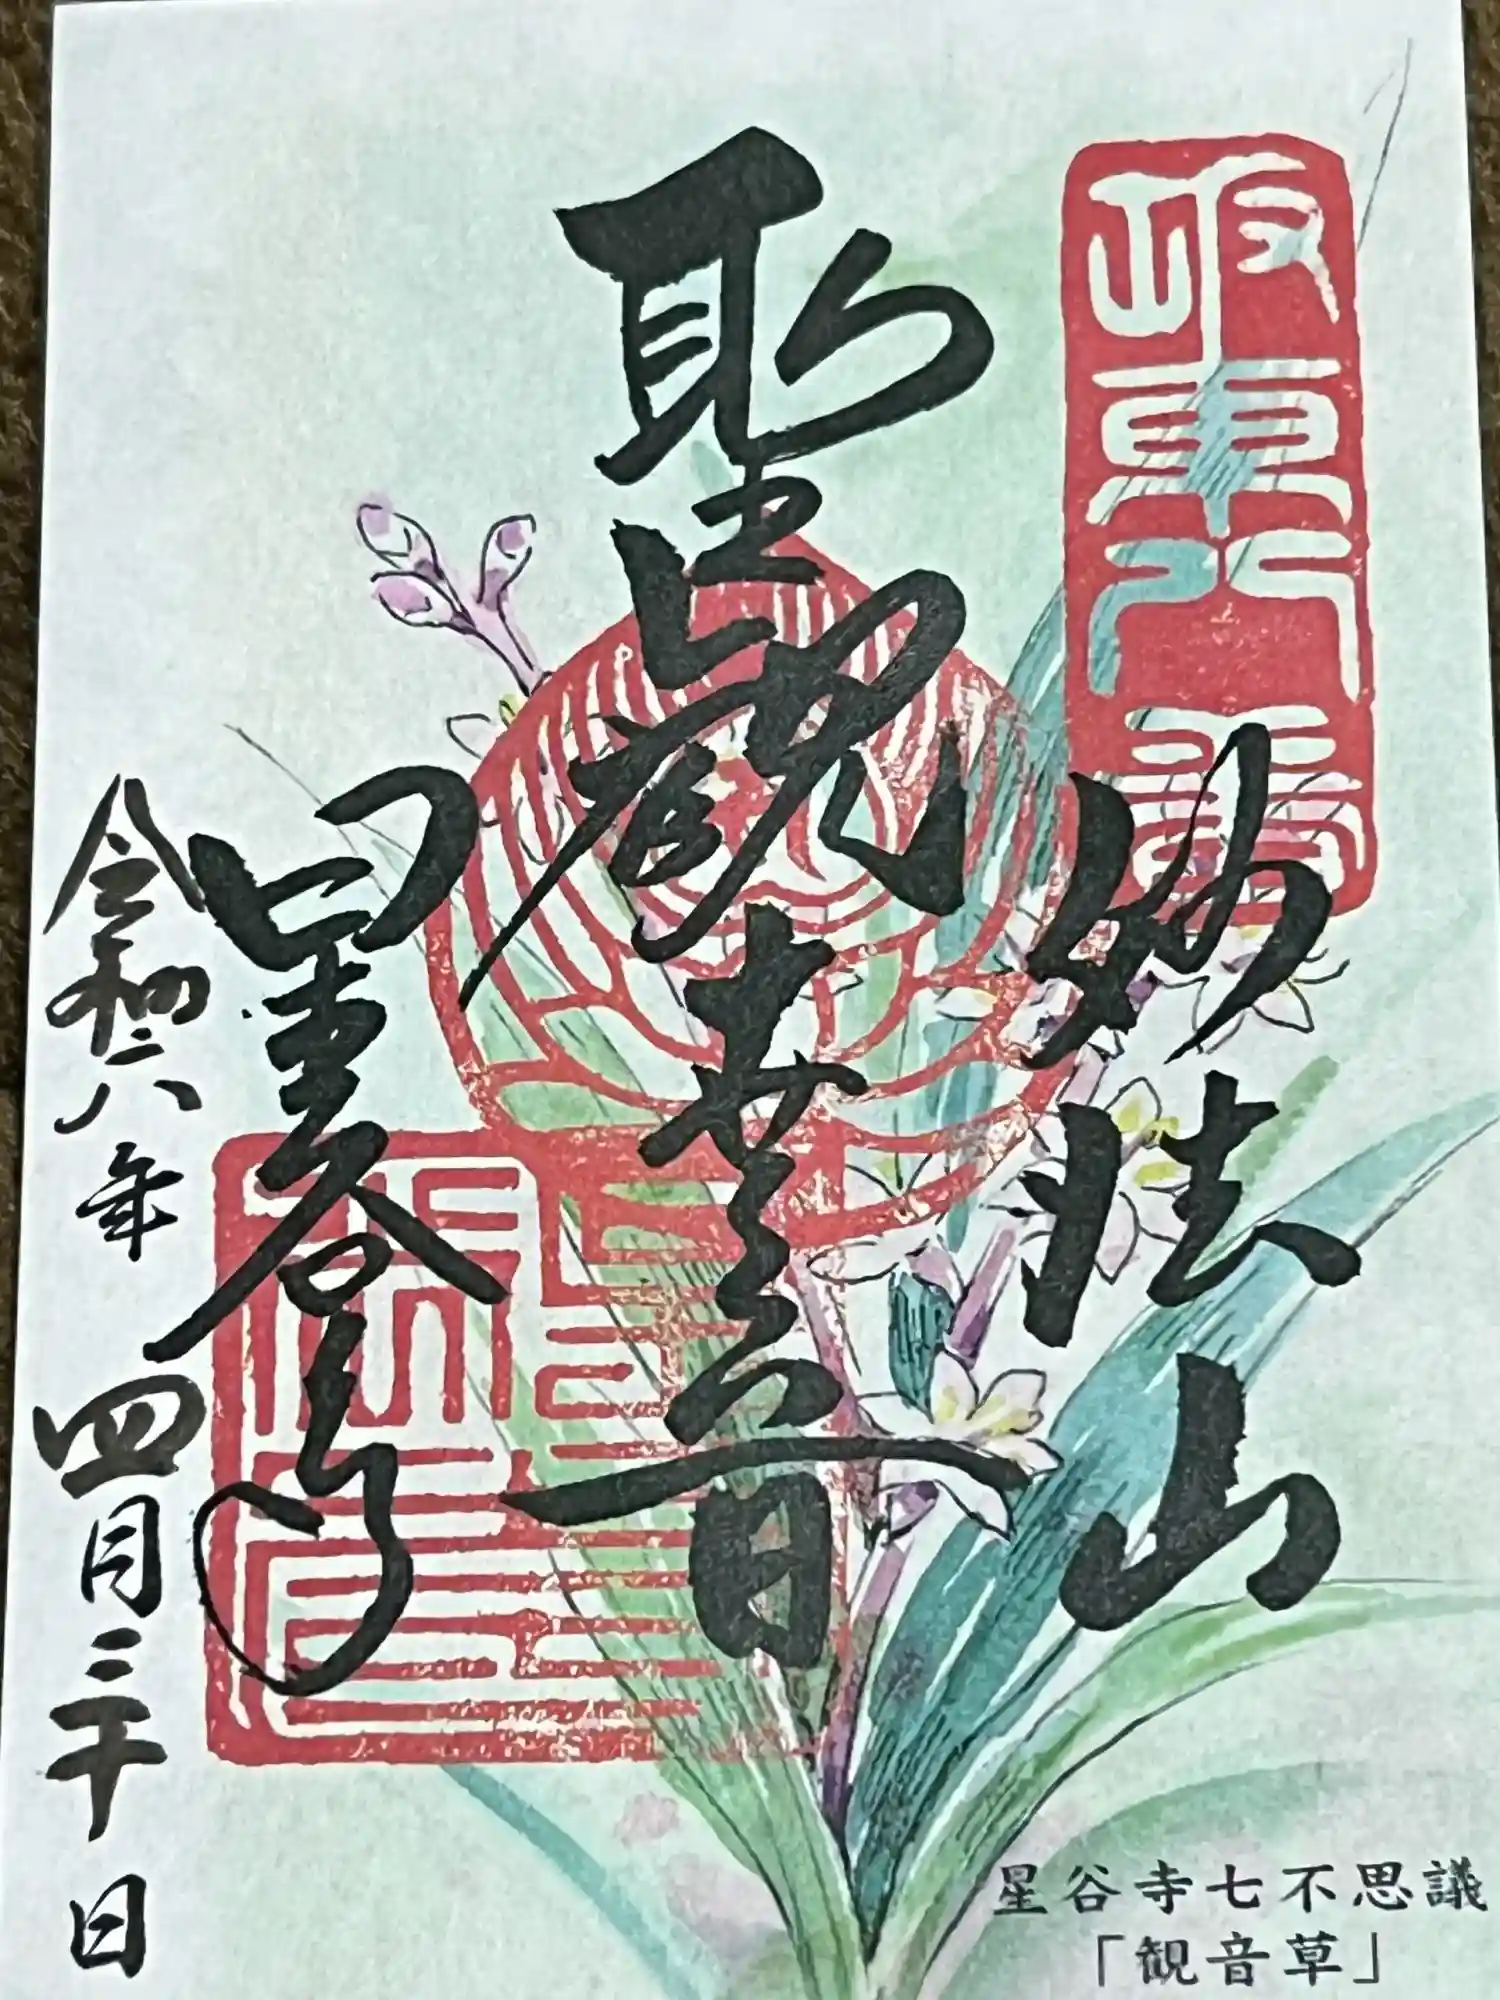 坂東八番
妙法山
聖観世音
星谷寺
令和六年 四月三十日
星谷寺七不思議
「観音草」